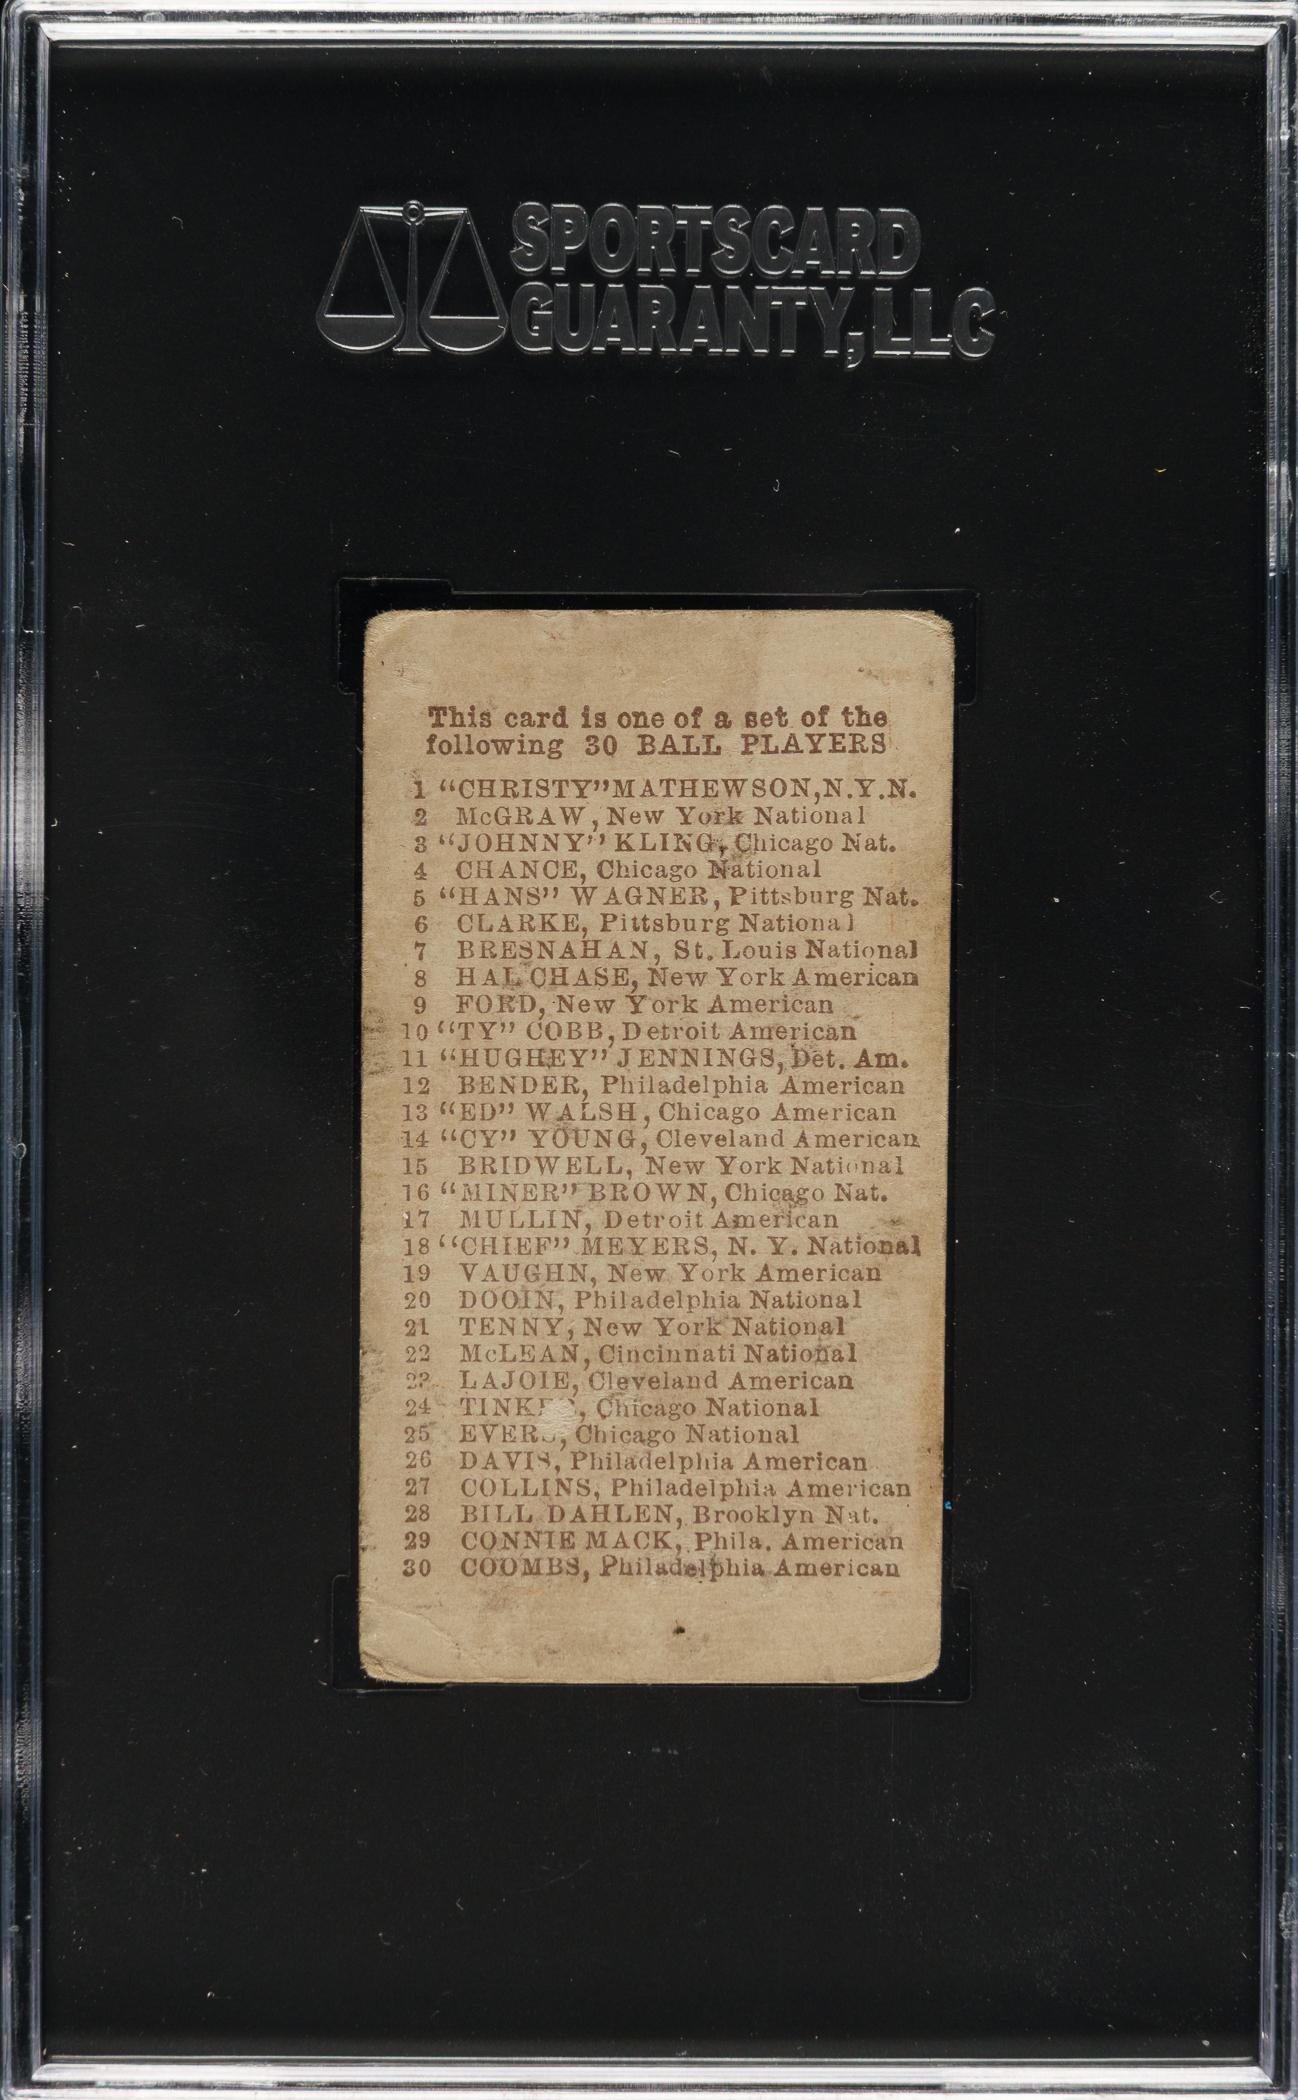 SPORTSCARD
GUARANTY, LLC
This card is one of a set of the
following 30 BALL PLAYERS
1 "CHRISTY" MATHEWSON, N.Y.N.
2 McGRAW, New York National
3 "JOHNNY" KLING, Chicago Nat.
4 CHANCE, Chicago National
5 "HANS" WAGNER, Pittsburg Nat.
6 CLARKE, Pittsburg National
7 BRESNAHAN, St. Louis National
8 HAL CHASE, New York American
9 FORD, New York American
10 "TY" COBB, Detroit American
11 "HUGHEY" JENNINGS, Det. Am.
12 BENDER, Philadelphia American
13 "ED" WALSH, Chicago American
14 "CY" YOUNG, Cleveland American
15 BRIDWELL, New York National
16 "MINER" BROWN, Chicago Nat.
17 MULLIN, Detroit American
18 "CHIEF" MEYERS, N. Y. National
19 VAUGHN, New York American
20 DOOIN, Philadelphia National
21 TENNY, New York National
22 McLEAN, Cincinnati National
23 LAJOIE, Cleveland American
24 Chicago National
25 EVERS, Chicago National
26 DAVIS, Philadelphia American
27 COLLINS, Philadelphia American
28 BILL DAHLEN, Brooklyn Nat.
29 CONNIE MACK, Phila. American
30 COOMBS, Philadelphia American